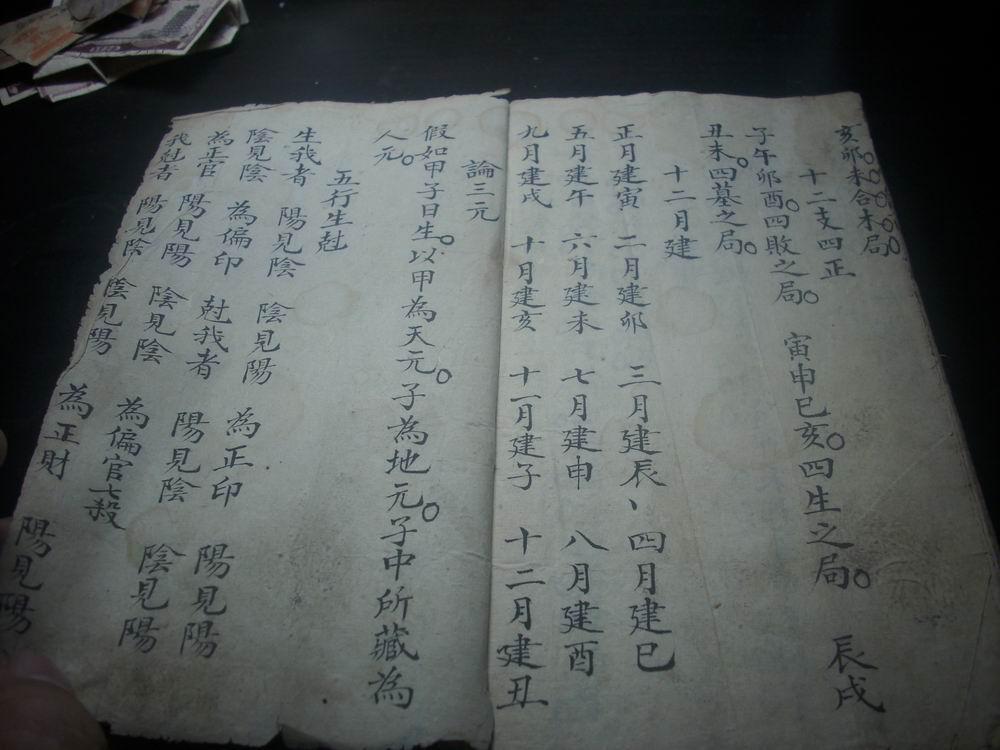 亥卯未合木局。
十二支四正
子午卯酉。四敗之局。 寅申巳亥。四生之局。 辰戌
丑未。四墓之局。
十二月建
正月建寅 二月建卯 三月建辰、 四月建巳
五月建午 六月建未 七月建申 八月建酉
九月建戌 十月建亥 十一月建子 十二月建丑
論三元
假如甲子日生。以甲為天元。子為地元。子中所藏為
人元。
五行生尅
生我者 陽見陰 陰見陽 為正印 陽見陽
陰見陰 為偏印 尅我者 陽見陰 陰見陽
為正官 陽見陽 陰見陰 為偏官七殺
我尅者 陽見陰 陰見陽 為正財 陽見陽